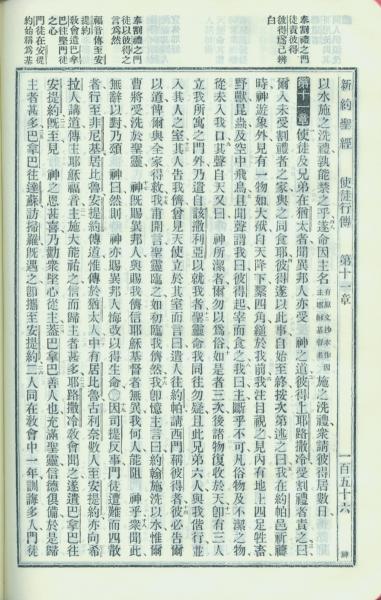 新約聖經 使徒行傳 第十一章 一百五十六 神
奉割禮之門
徒責彼得之
彼得爲己辨
白
奉割禮之門
徒以彼得之
言爲然
福音傳至安
提約
教會遣巴拿
巴往堅門徒
之心
門徒在安提
約始稱爲基
以水施之洗禮孰能禁之乎遂命因主名有原文抄本作因主耶穌基督名施之洗禮衆請彼得居數日
第十一章 使徒及兄弟在猶太者聞異邦人亦受 神之道彼得上耶路撒冷受割禮者責之曰
爾入未受割禮者之家與之同食耶彼得遂以此事自始至終按次第述之曰我在約帕邑祈禱
時神遊象外見有一物如大布自天降下繫四角縋於我前我注目視之見內有地上四足牲畜
野獸昆蟲及空中飛鳥且聞聲謂我曰彼得起宰而食之我曰主斷乎不可凡俗物及不潔之物
從未入我口其聲自天又曰 神所潔者爾勿以爲俗如是者三次後諸物復收於天卽有三人
立我所寓之門外乃遣自該撒利亞以就我者聖靈命我同往勿疑且此兄弟六人與我偕行並
入其人之室其人告我儕曾見天使立於其室而言曰遣人往約帕請西門稱彼得者彼必告爾
以道俾爾與全家得救我甫開言聖靈臨之如初臨我儕然我卽憶主言曰約翰施洗以水惟爾
曹將受洗於聖靈 神旣賜異邦人與賜我儕信耶穌基督者無異我何人能阻 神乎衆聞此
無辭以對乃頌 神曰然則 神亦賜異邦人悔改以得生命○因司提反事門徒遭難而四散
者行至非尼基居比魯安提約傳道惟傳於猶太人中有居比魯古利奈數人至安提約亦向希
拉人講道傳主耶穌福音主施大能祐之信而歸主者甚多耶路撒冷教會聞之遂遣巴拿巴往
安提約旣至見 神之恩甚喜乃勸衆堅心從主蓋巴拿巴善人也充滿聖靈信德俱備於是歸
主者甚多巴拿巴往達蘇訪掃羅旣遇之卽攜至安提約二人同在教會中一年訓誨多人門徒